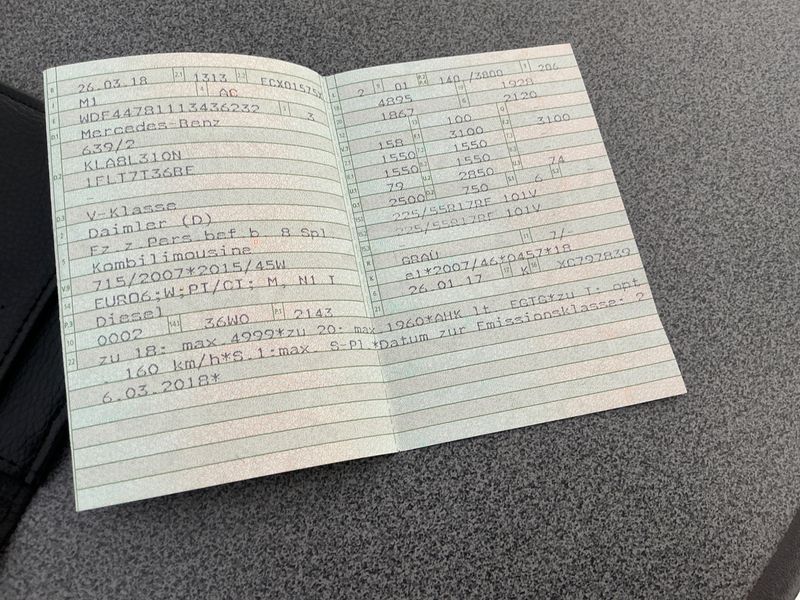 26.03.18 1313 ECX01575X
M1 AC
WDF44781113436232 3
Mercedes-Benz
639/2
KLA8L310N
1FLT7T36BE
-
V-Klasse
Daimler (D)
Fz.z.Pers.bef.b. 8 Spl
Kombilimousine
715/2007*2015/45W
EURO6;W;PI/CI; M, N1 I
Diesel
0002 36W0 2143
zu 18: max.4999*zu 20: max
. 160 km/h*S.1:max. S-Pl
6.03.2018*
2 01 140 /3800 206
4895 1928
1867 2120
100
158 3100 3100
1550 1550
1550 1550
79 2850 74
2500 750 6
225/55R17RF 101V
225/55R17RF 101V
GRAU 7/-
e1*2007/46*0457*18
26.01.17 K XC797839
.1960*AHK lt. EGTG*zu T: opt
*Datum zur Emissionsklasse: 2